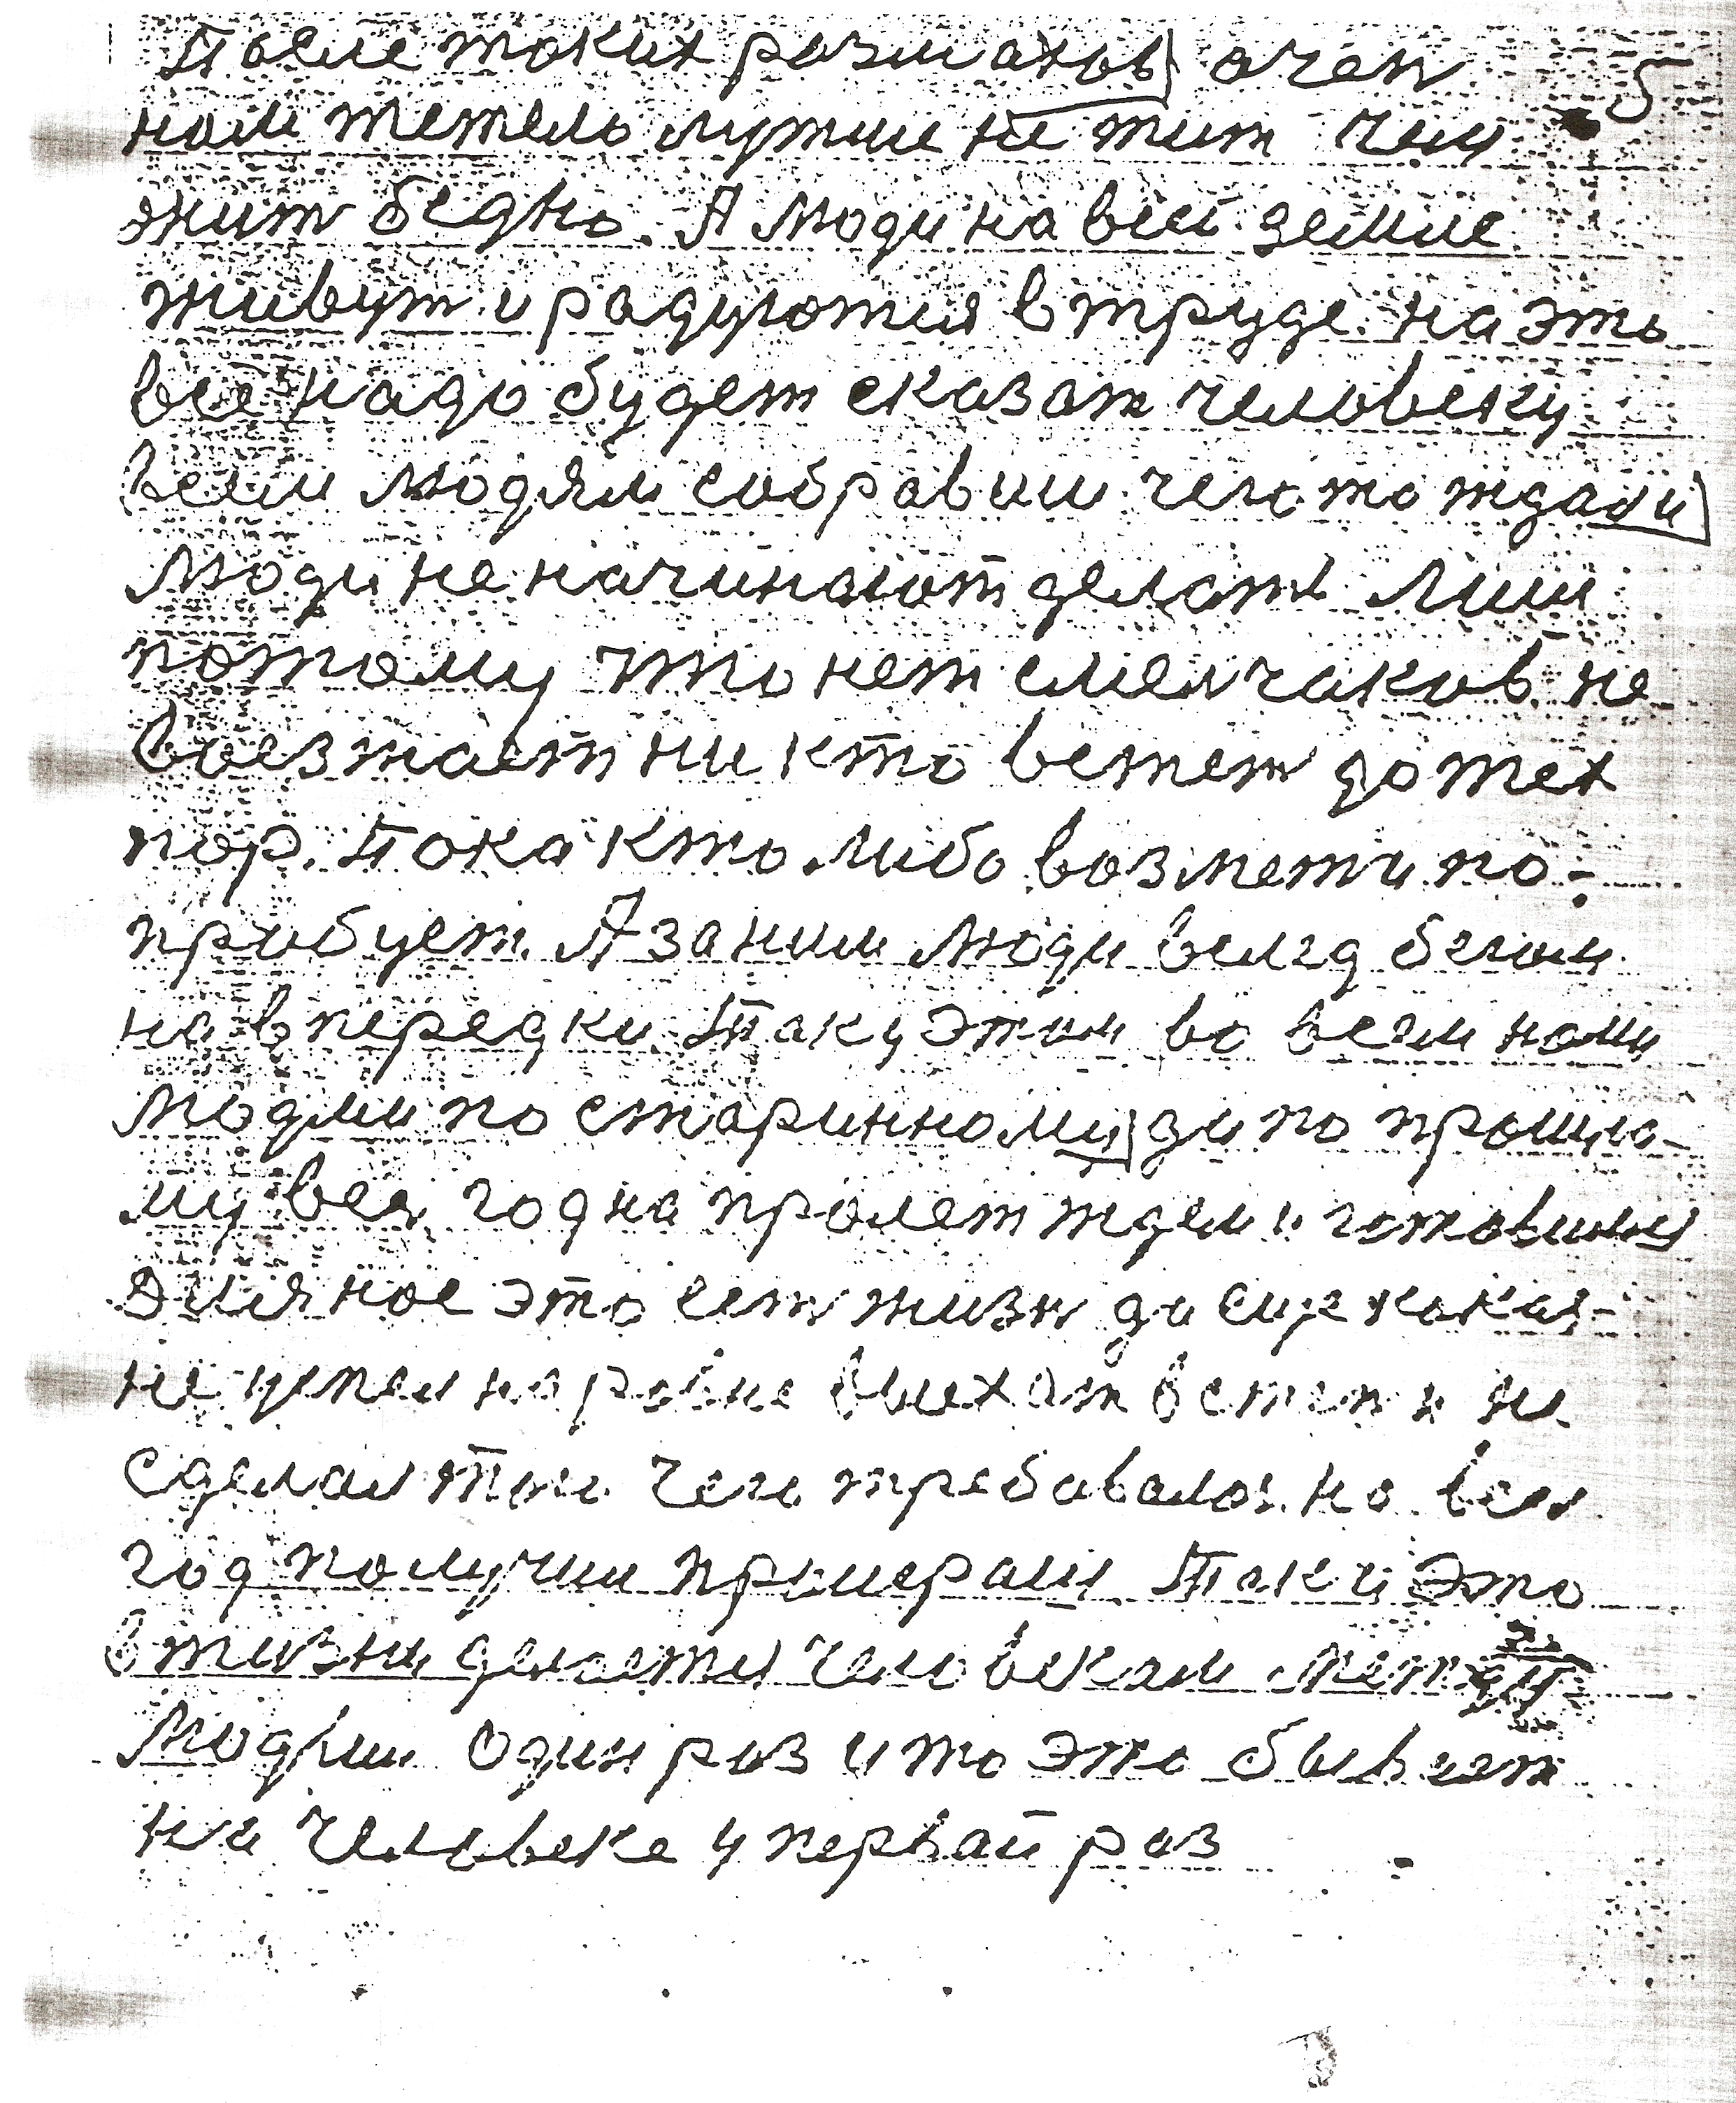 После таких размахов очен 5
нам тежело лутши не жит чем
жит бедно. А люди на всей земле
живут и радуются в труде. на это
все надо будет сказат человеку
всем людям собравши чего то ждали
Люди не начинают делать Лиш
потому что нет смелчаков. не
возмает ни кто в
пор. Пока кто либо возмет и по-
пробует. А за ним люди вслед бегом
на в передки. Так у этим во всем нам
людям по старинному да по прошло-
му вся год на пролет ждем и готовимся
это ест жизн да еще какая-
не успел на ра
сделал того чего требавалос. но вся
год получил примерами Так и это
в жизни делается человеком между
людями Один раз и то это бывает
на человеке у первай раз